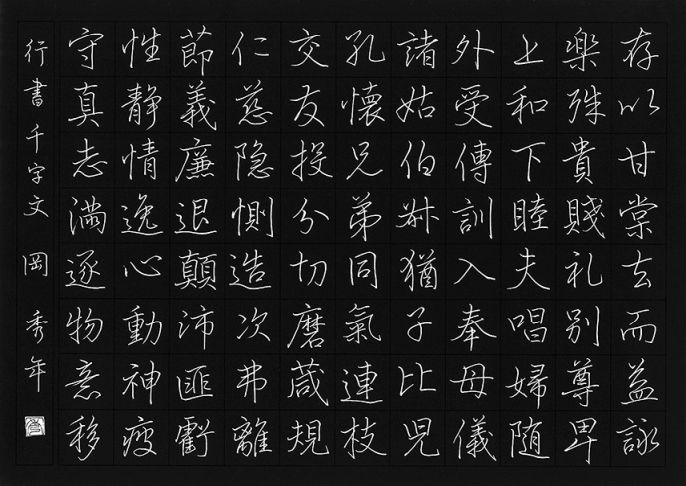 存以甘棠去而益詠
楽殊貴賤礼別尊卑
上和下睦夫唱婦随
外受傳訓入奉母儀
諸姑伯叔猶子比児
孔懐兄弟同氣連枝
交友投分切磨箴規
仁慈隐惻造次弗離
節義廉退顛沛匪虧
性静情逸心動神疲
守真志満逐物意移
行書千字文 岡 秀年